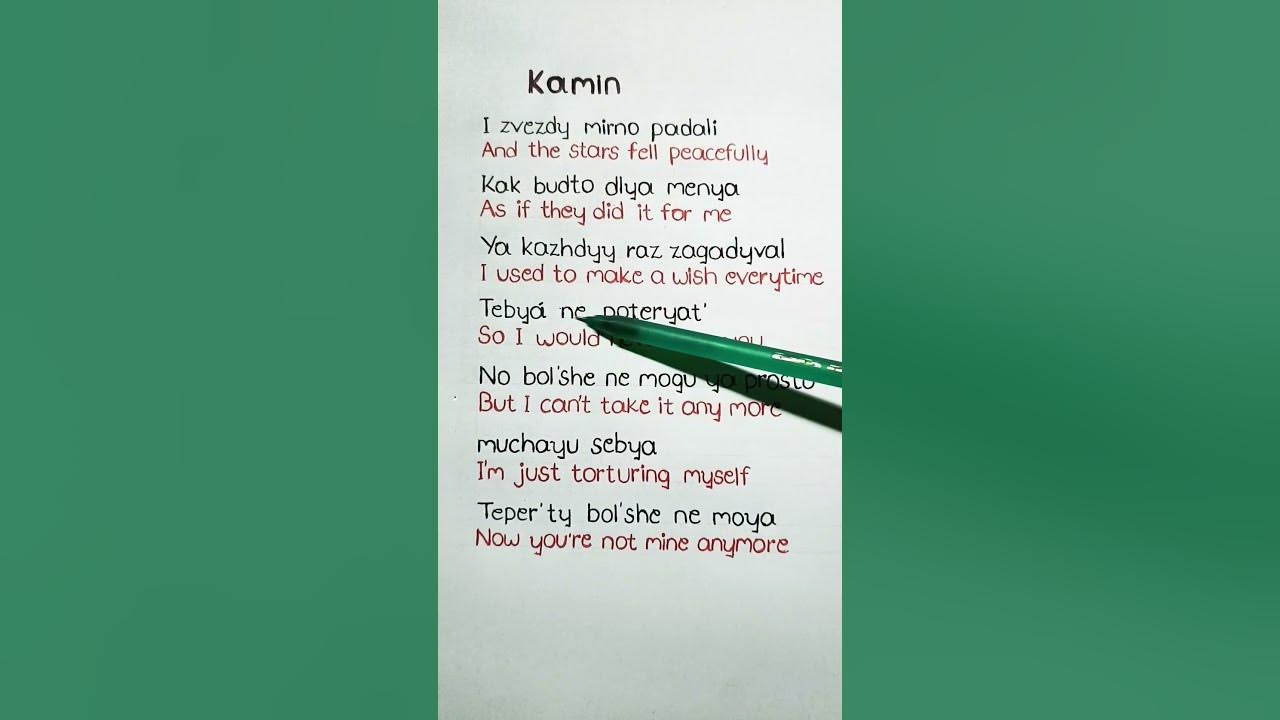 Kamin
I zvezdy mirno padali
And the stars fell peacefully
Kak budto dlya menya
As if they did it for me
Ya kazhdyy raz zagadyval
I used to make a wish everytime
Tebyá ne poteryat'
So I would you
No bol'she ne mogu ya prosto
But I can't take it any more
muchayu sebya
I'm just torturing myself
Teper' ty bol'she ne moya
Now you're not mine anymore